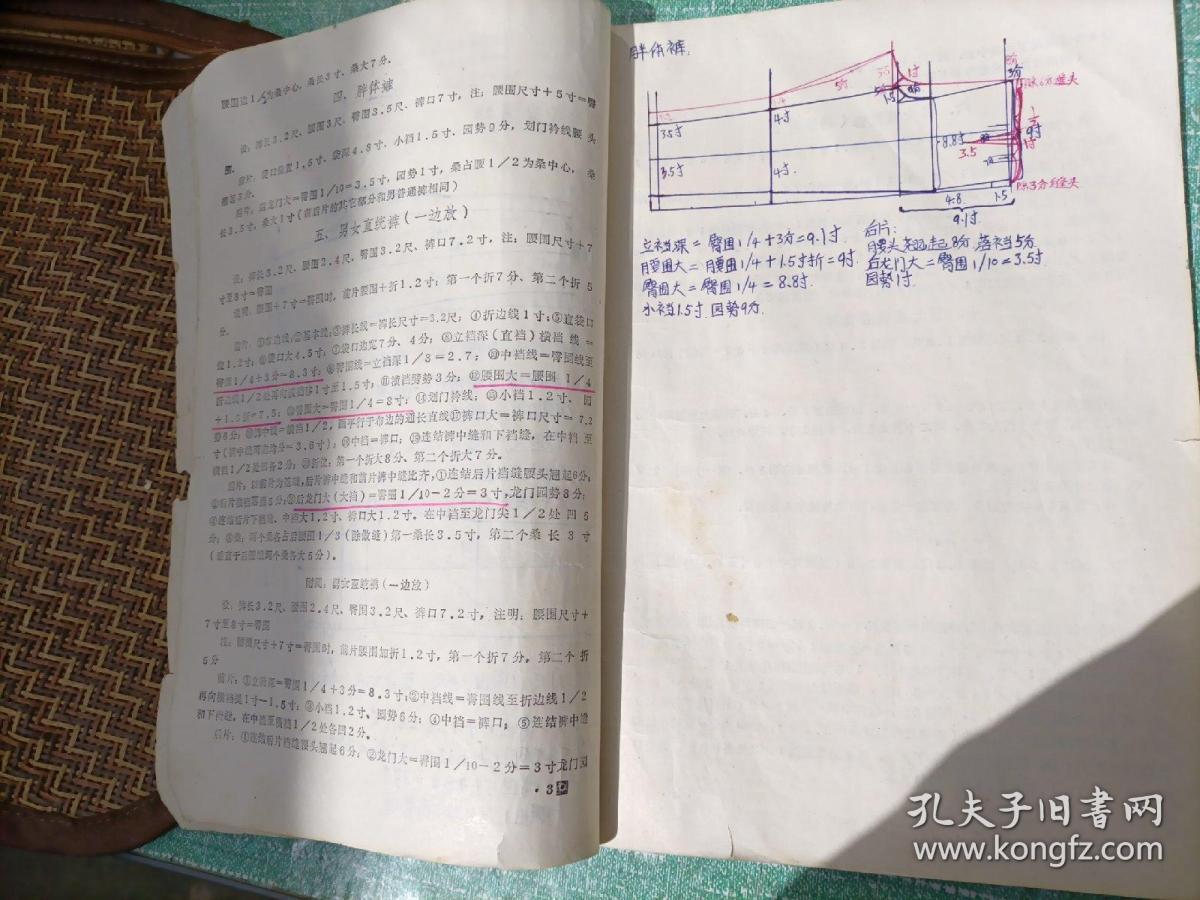 腰围边1/3为桑中心、桑长3寸、桑大7分。
四、胖体裤
设：裤长3.2尺、腰围3尺、臀围3.5尺、裤口7寸，注：腰围尺寸+5寸=臀
围。
前片：袋口位置1.5寸、袋深4.8寸、小裆1.5寸、凹势9分，划门衿线腰头
后片：后龙门大=臀围1/10=3.5寸，凹势1寸，桑占腰1/2为桑中心，桑
长3.5寸，桑大1寸（前后片的其它部分和男普通裤相同）
五、男女直统裤（一边放）
设：裤长3.2尺、腰围2.4尺、臀围3.2尺、裤口7.2寸，注：腰围尺寸+7
寸至8寸=臀围
说明：腰围+7寸=臀围时，前片腰围+折1.2寸；第一个折7分、第二个折5
分。
裤长线=裤长尺寸=3.2尺；④折边线1寸；⑤直袋口
位1.2寸；⑥袋口大4.5寸；⑦袋口边宽7分、4分；⑧立裆深（直裆）横裆线=
臀围1/4+3分=8.3寸；⑨臀围线=立裆深1/3=2.7；⑩中裆线=臀围线至
折边线1/2处再向横裆移1寸至1.5寸；⑪横裆劈势3分；⑫腰围大=腰围1/4
+1.5折=7.5；⑬臀围大=臀围1/4=8寸；⑭划门衿线；⑮小裆1.2寸、凹
势6分；横裆1/2，画平行于布边的通长直线⑰裤口大=裤口尺寸=7.2
寸（裤中缝两边均分=3.6寸）；⑱中裆=裤口；⑲连结裤中缝和下裆缝，在中裆至
横裆1/2处凹各2分；⑳折位：第一个折大8分、第二个折大7分。
后片：以前片为基础，后片裤中缝和前片裤中缝比齐，①连结后片裆缝腰头翘起6分；
②后片横裆落裆5分；③后龙门大（大裆）=臀围1/10-2分=3寸，龙门凹势8分；
④连结后片下裆缝、中裆大1.2寸、裤口大1.2寸。在中裆至龙门尖1/2处凹5
分；⑤桑：两个桑各占后腰围1/3（除做缝）第一桑长3.5寸，第二个桑长3寸
（垂直于后腰缝两个桑各大5分）。
附则：男女直统裤（一边放）
设：裤长3.2尺、腰围2.4尺、臀围3.2尺、裤口7.2寸，注明：腰围尺寸+
7寸至8寸=臀围
注：腰围尺寸+7寸=臀围时，前片腰围加折1.2寸，第一个折7分，第二个折
5分
前片：①立裆深=臀围1/4+3分=8.3寸；②中裆线=臀围线至折边线1/2
再向横裆提1寸-1.5寸；③小裆1.2寸、凹势6分；④中裆=裤口；⑤连结裤中缝
和下裆缝，在中裆至横裆1/2处各凹2分。
后片：①连结后片裆缝腰头翘起6分；②龙门大=臀围1/10-2分=3寸龙门凹
·3
胖体裤：
5分
1寸
1.5
3分
3.5寸
4寸
8.8寸
3.5
9寸
1寸
3.5寸
4寸
4.8
1.5
9.1寸
立裆深=臀围1/4+3分=9.1寸.
腰围大=腰围1/4+1.5寸折=9寸
臀围大=臀围1/4=8.8寸
小裆1.5寸.凹势9分.
后片：
腰头翘起8分.落裆5分
后龙门大=臀围1/10=3.5寸
凹势1寸
孔夫子旧书网
www.kongfz.com